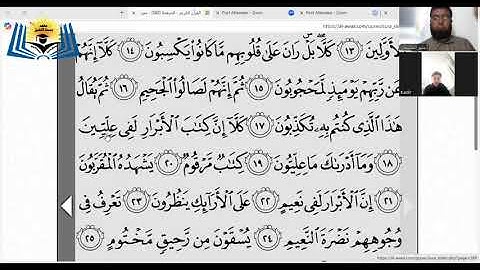 ٱلْأَوَّلِينَ ١٣ كَلَّا بَلْ رَانَ عَلَىٰ قُلُوبِهِم مَّا كَانُوا۟ يَكْسِبُونَ ١٤ كَلَّآ إِنَّهُمْ
عَن رَّبِّهِمْ يَوْمَئِذٍ لَّمَحْجُوبُونَ ١٥ ثُمَّ إِنَّهُمْ لَصَالُوا۟ ٱلْجَحِيمِ ١٦ ثُمَّ يُقَالُ
هَٰذَا ٱلَّذِى كُنتُم بِهِۦ تُكَذِّبُونَ ١٧ كَلَّآ إِنَّ كِتَٰبَ ٱلْأَبْرَارِ لَفِى عِلِّيِّينَ
١٨ وَمَآ أَدْرَىٰكَ مَا عِلِّيُّونَ ١٩ كِتَٰبٌ مَّرْقُومٌ ٢٠ يَشْهَدُهُ ٱلْمُقَرَّبُونَ
٢١ إِنَّ ٱلْأَبْرَارَ لَفِى نَعِيمٍ ٢٢ عَلَى ٱلْأَرَآئِكِ يَنظُرُونَ ٢٣ تَعْرِفُ فِى
وُجُوهِهِمْ نَضْرَةَ ٱلنَّعِيمِ ٢٤ يُسْقَوْنَ مِن رَّحِيقٍ مَّخْتُومٍ ٢٥